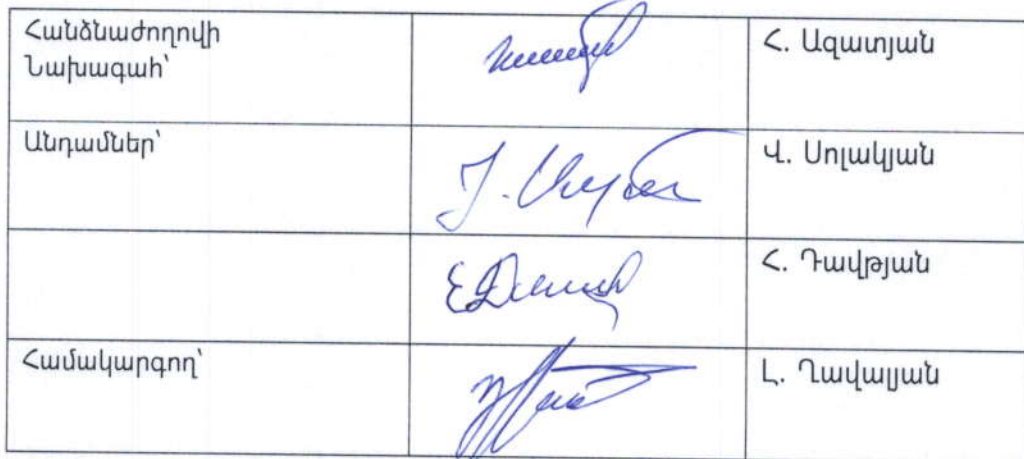 Հանձնաժողովի
Նախագահ՝
Հ. Ազատյան
Անդամներ՝
Վ. Սոլակյան
Հ. Դավթյան
Համակարգող՝
Լ. Ղավալյան